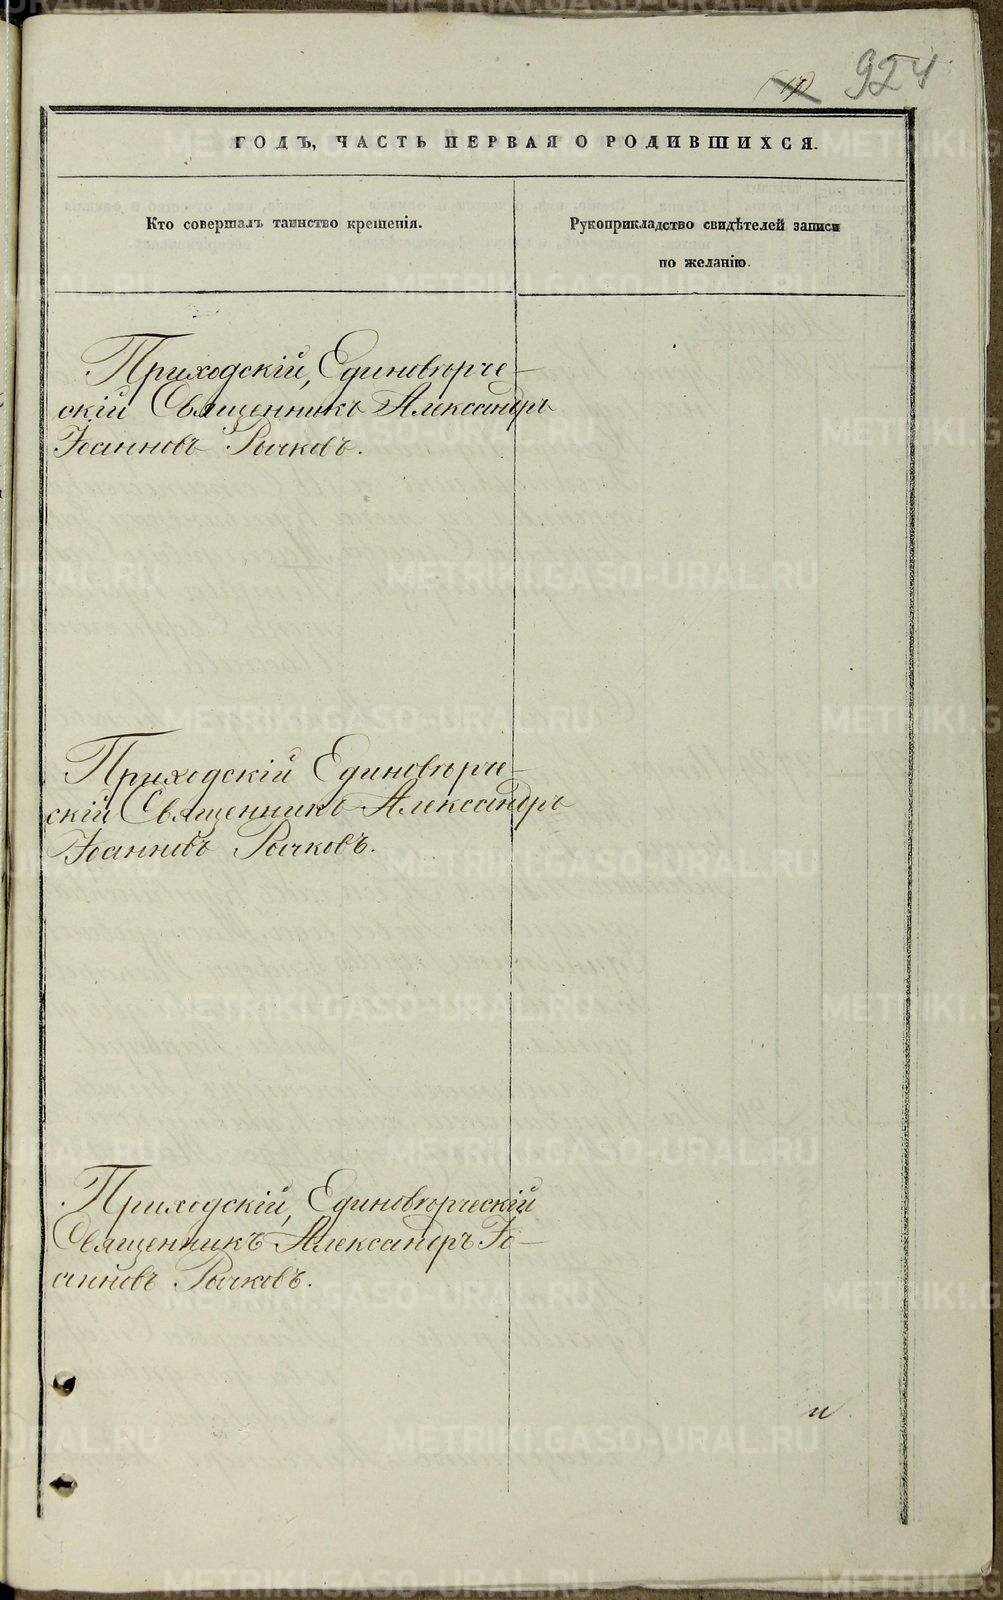 924
ГОДЪ, ЧАСТЬ ПЕРВАЯ О РОДИВШИХСЯ.
Кто совершалъ таинство крещенія.
Рукоприкладство свидѣтелей записи
по желанію.
Приходскій, Единовѣрче-
скій Священникъ Александръ
Іоанновъ Рычковъ.
Приходскій Единовѣрче-
скій Священникъ Александръ
Іоанновъ Рычковъ.
Приходскій, Единовѣрческій
Священникъ Александръ Іо-
анновъ Рычковъ.
и
METRIKI.GASO-URAL.RU